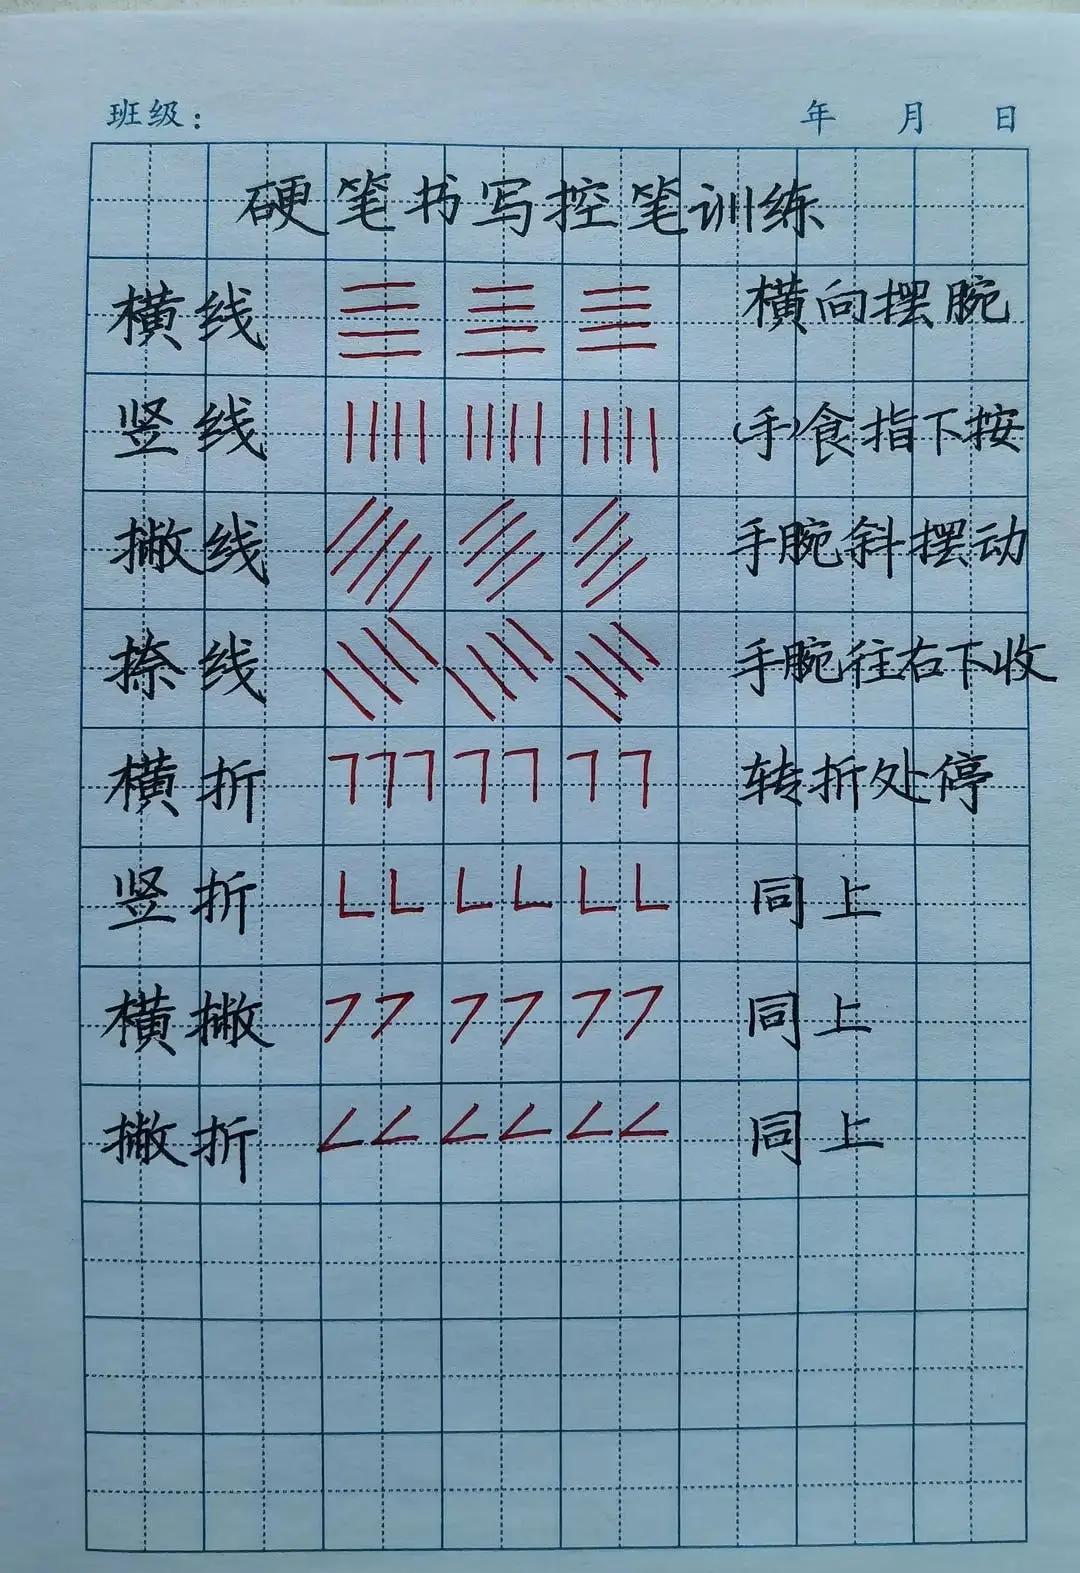 班级： 年 月 日
硬笔书写控笔训练
横线 横向摆腕
竖线 (手)食指下按
撇线 手腕斜摆动
捺线 手腕往右下收
横折 转折处停
竖折 同上
横撇 同上
撇折 同上